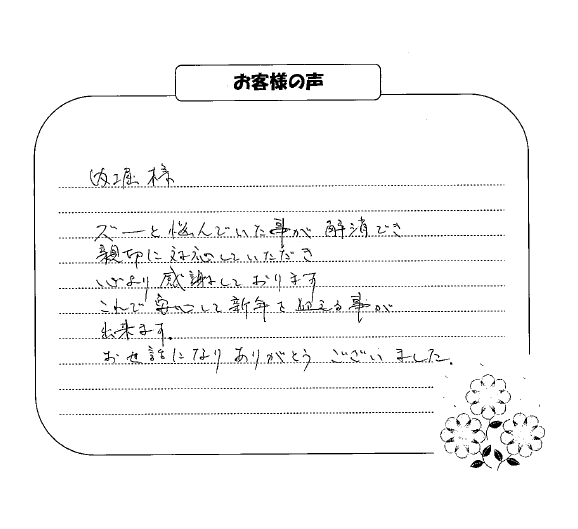 お客様の声
内堀 様
ズーと悩んでいた事が 解消でき
親切に対応していただき
心より 感謝しております
これで 安心して 新年を 迎える事が
出来ます。
お世話になり ありがとう ございました。